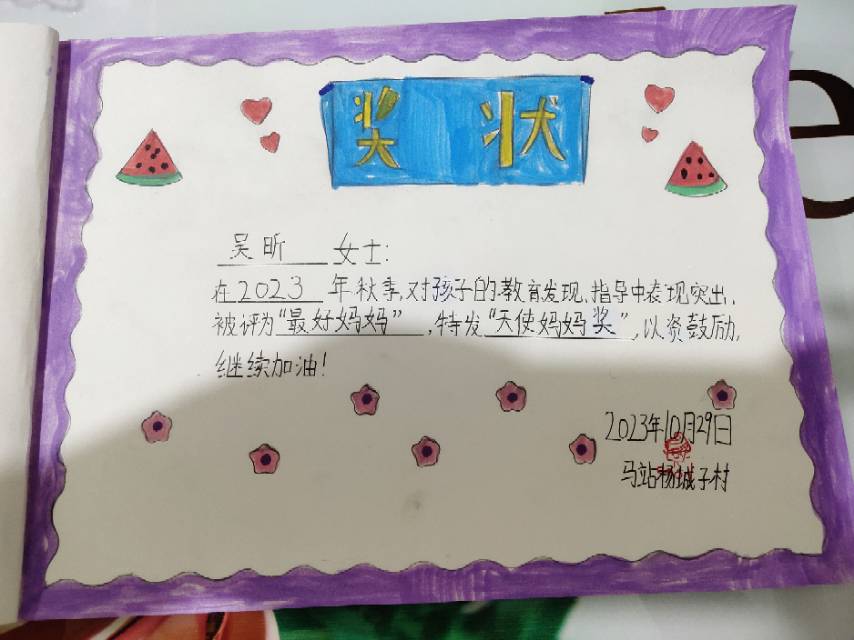 奖状
吴昕 女士:
在2023年秋季,对孩子的教育发现、指导中表现突出,
被评为“最好妈妈”,特发“天使妈妈奖”,以资鼓励,
继续加油!
2023年10月29日
马站杨城子村